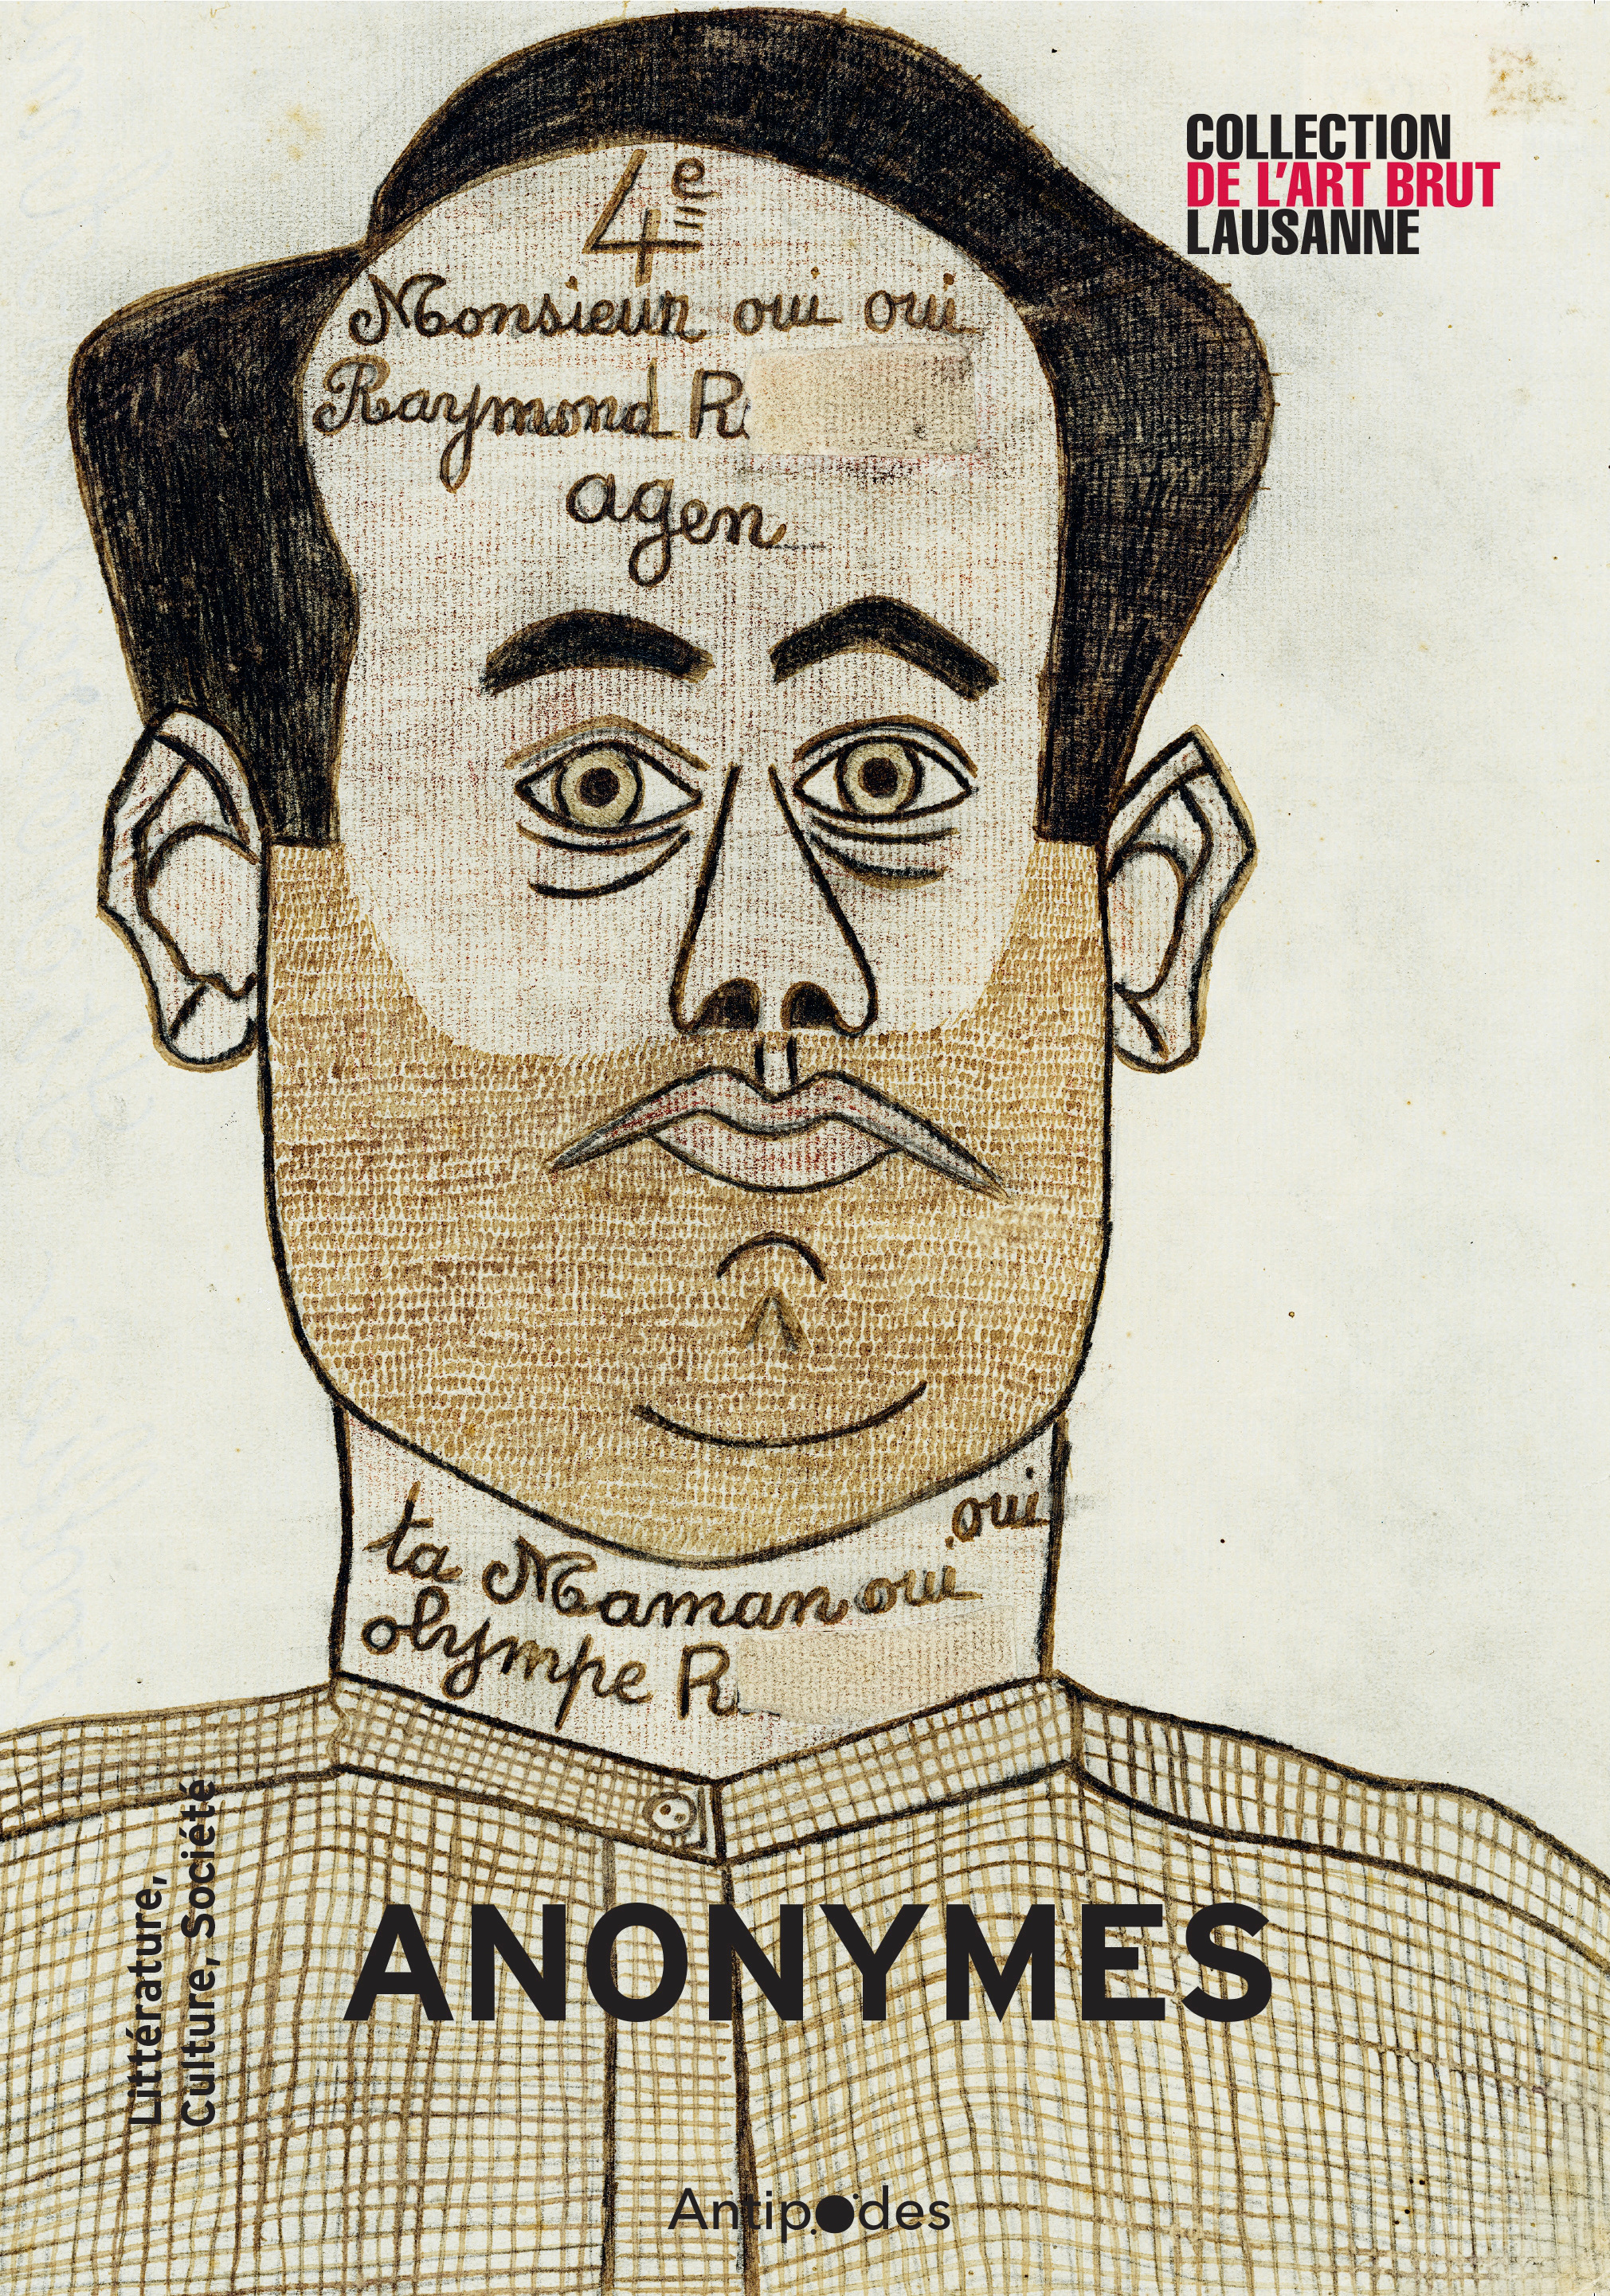 COLLECTION
DE L'ART BRUT
LAUSANNE
4e
Monsieur oui oui
Raymond R.
agen
oui
ta Maman oui
olympe R.
Littérature,
Culture, Société
ANONYMES
Antipodes